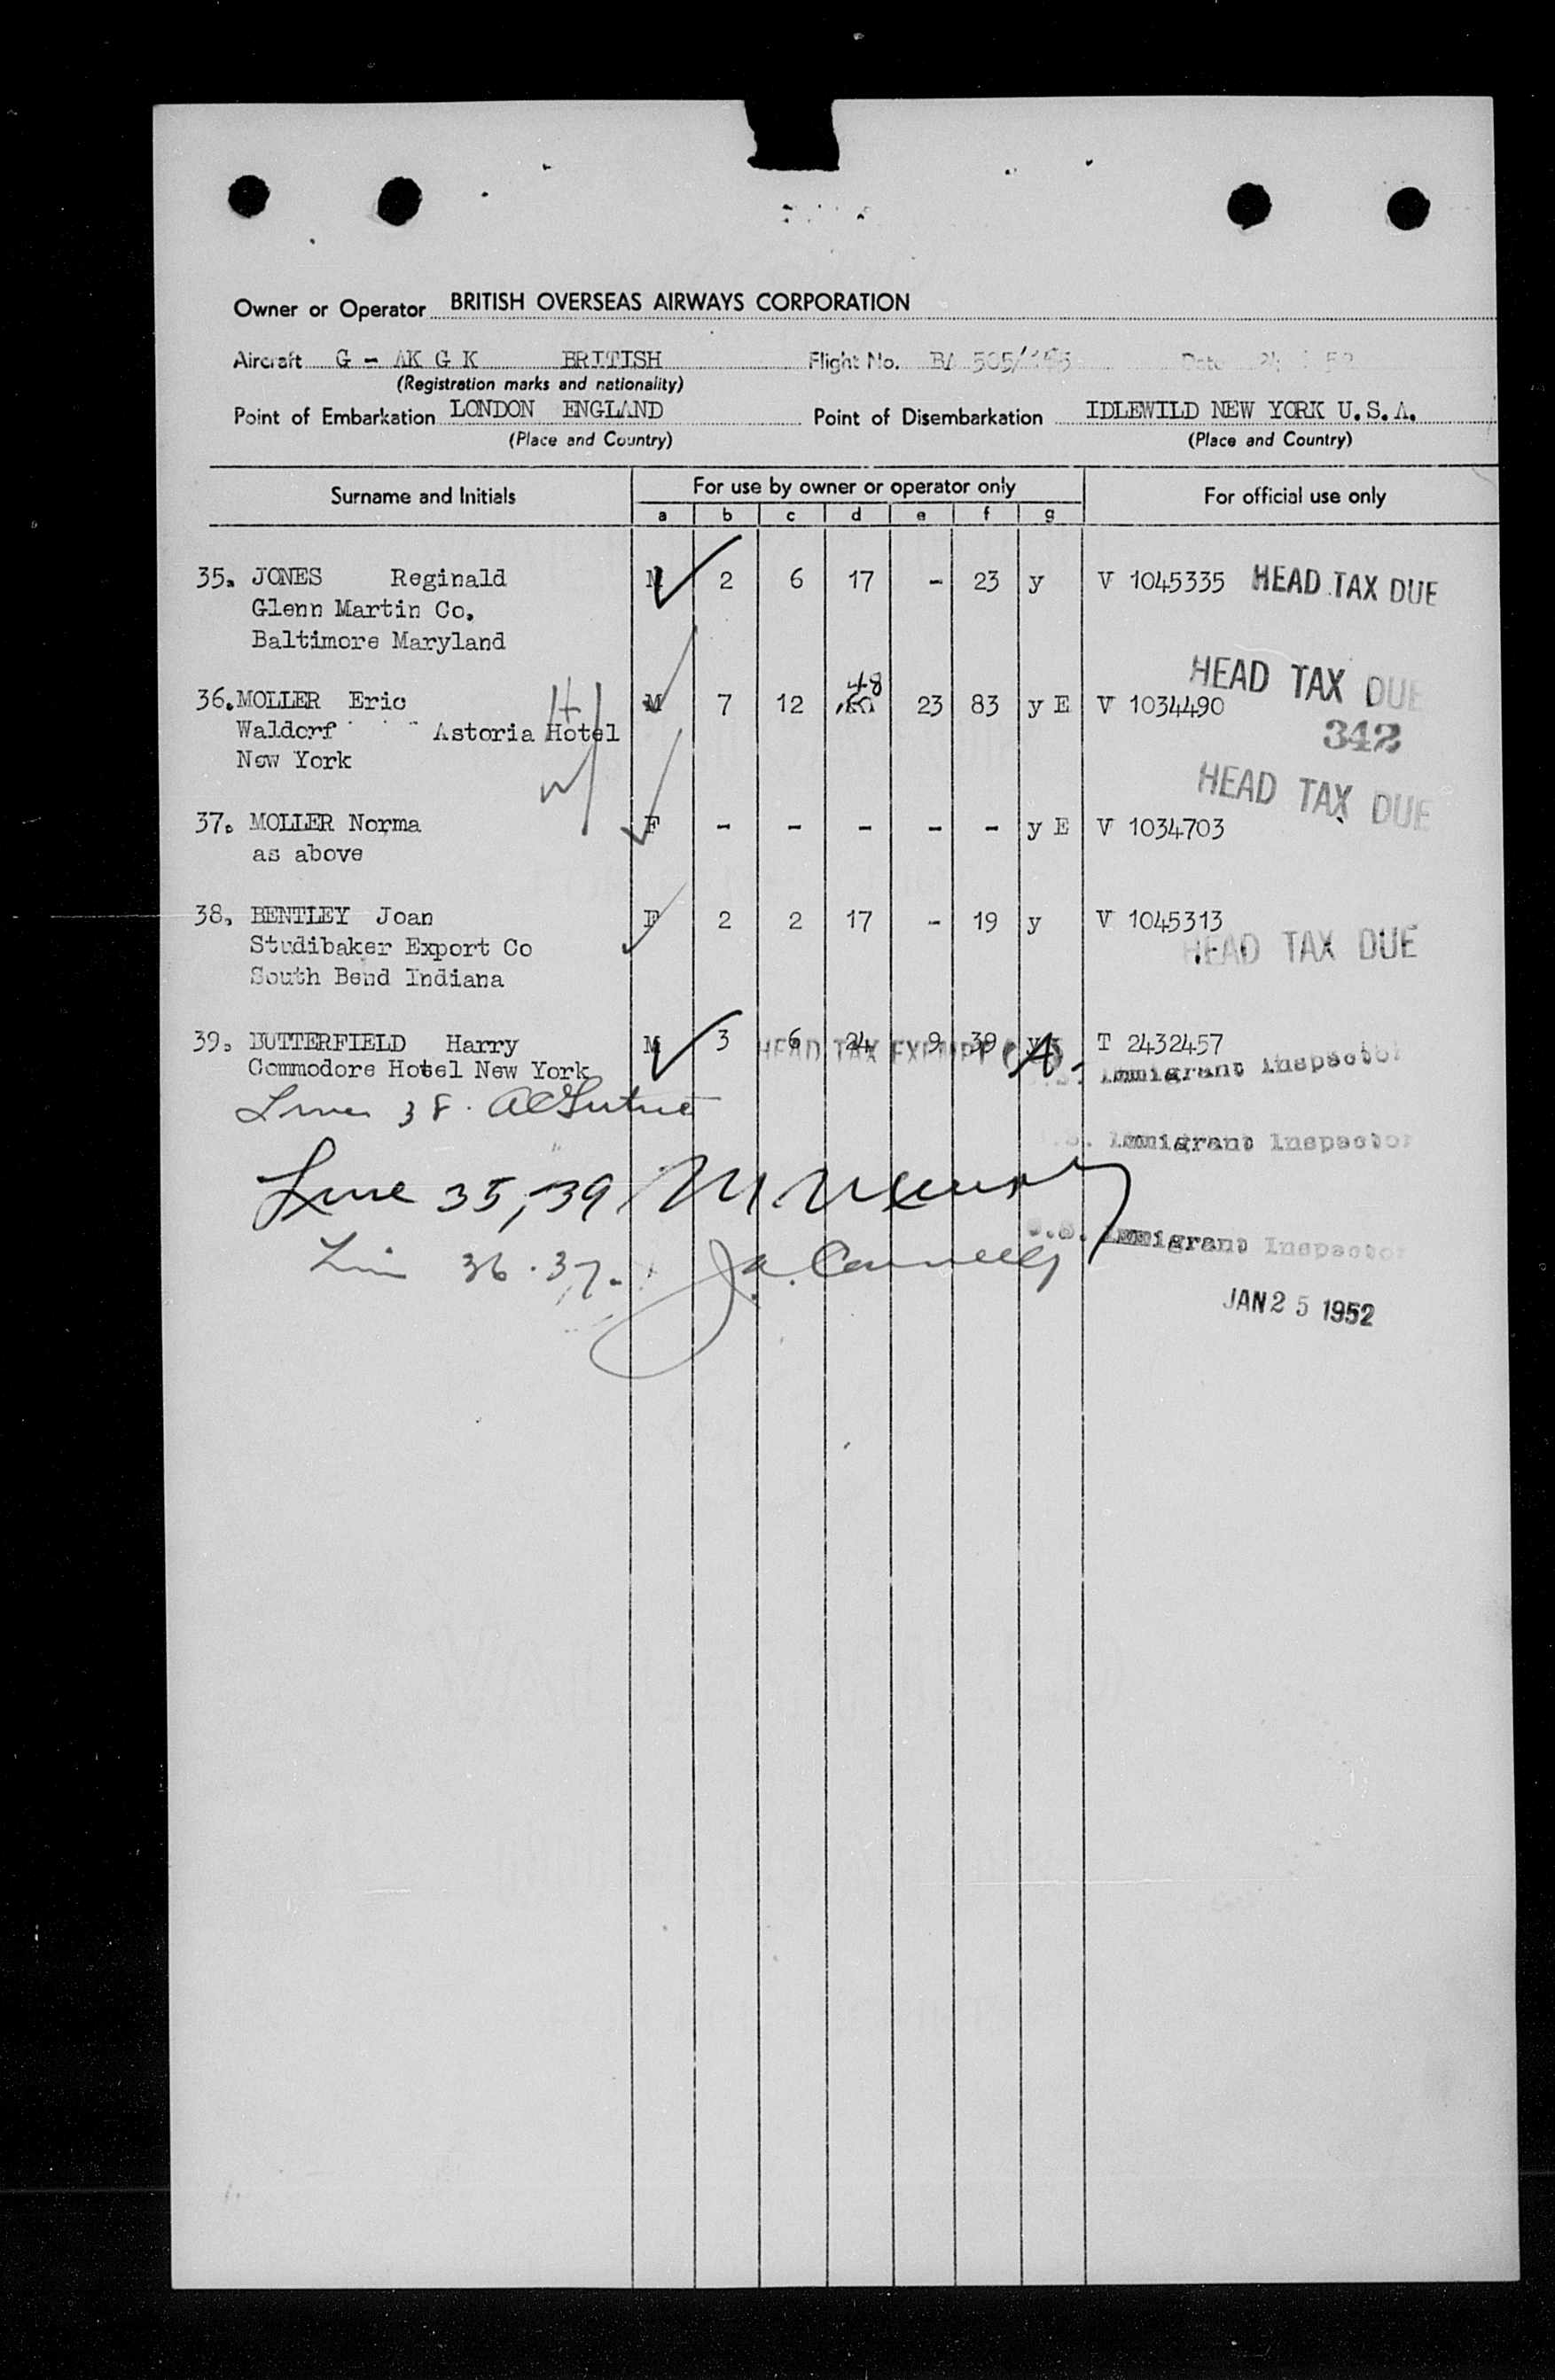 Owner or Operator BRITISH OVERSEAS AIRWAYS CORPORATION
Aircraft G - AK G K BRITISH Flight No. BA 505/ Date 24 52
(Registration marks and nationality)
Point of Embarkation LONDON ENGLAND Point of Disembarkation IDLEWILD NEW YORK U.S.A.
(Place and Country) (Place and Country)
Surname and Initials For use by owner or operator only For official use only
a b c d e f g
35. JONES Reginald M 2 6 17 - 23 y V 1045335 HEAD TAX DUE
Glenn Martin Co.
Baltimore Maryland
HEAD TAX DUE
48
36. MOLLER Eric M 7 12 23 83 y E V 1034490
Waldorf Astoria Hotel 342
New York
HEAD TAX DUE
37. MOLLER Norma F - - - - - y E V 1034703
as above
38. BENTLEY Joan F 2 2 17 - 19 y V 1045313
Studibaker Export Co HEAD TAX DUE
South Bend Indiana
39. BUTTERFIELD Harry M 3 6 24 9 39 y T 2432457
HEAD TAX EXEMPT
Commodore Hotel New York Immigrant Inspector
Line 38.
U.S. Immigrant Inspector
Line 35, 39
U.S. Immigrant Inspector
Lin 36.37. J.A.
JAN 25 1952